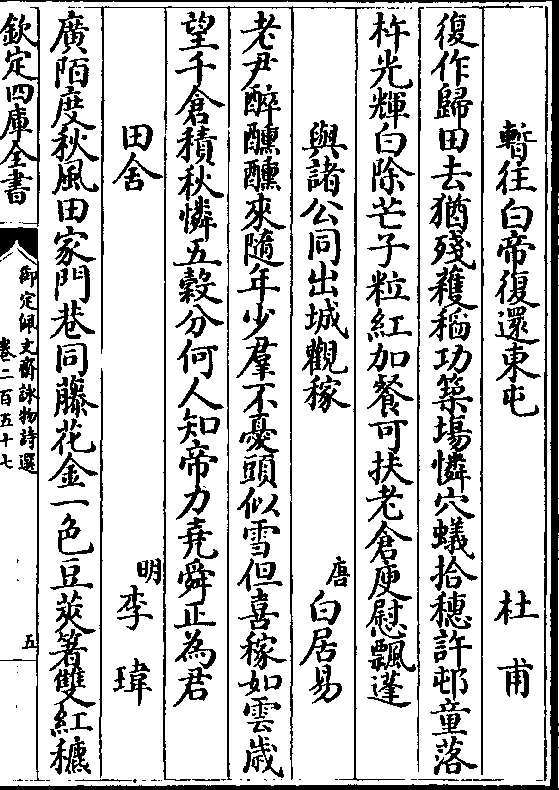 暫往白帝復還東屯　杜甫
復作歸田去猶殘穫稻功築場憐穴蟻拾穗許邨童落
杵光輝白除芒子粒紅加餐可扶老倉庾慰飄蓬
與諸公同出城觀稼　唐白居易
老尹醉醺醺來隨年少羣不憂頭似雪但喜稼如雲歲
望千倉積秋憐五穀分何人知帝力堯舜正為君
田舍　明李瑋
廣陌度秋風田家門巷同藤花金一色豆莢箸雙紅穮
欽定四庫全書
御定佩文齋詠物詩選
卷二百五十七
五